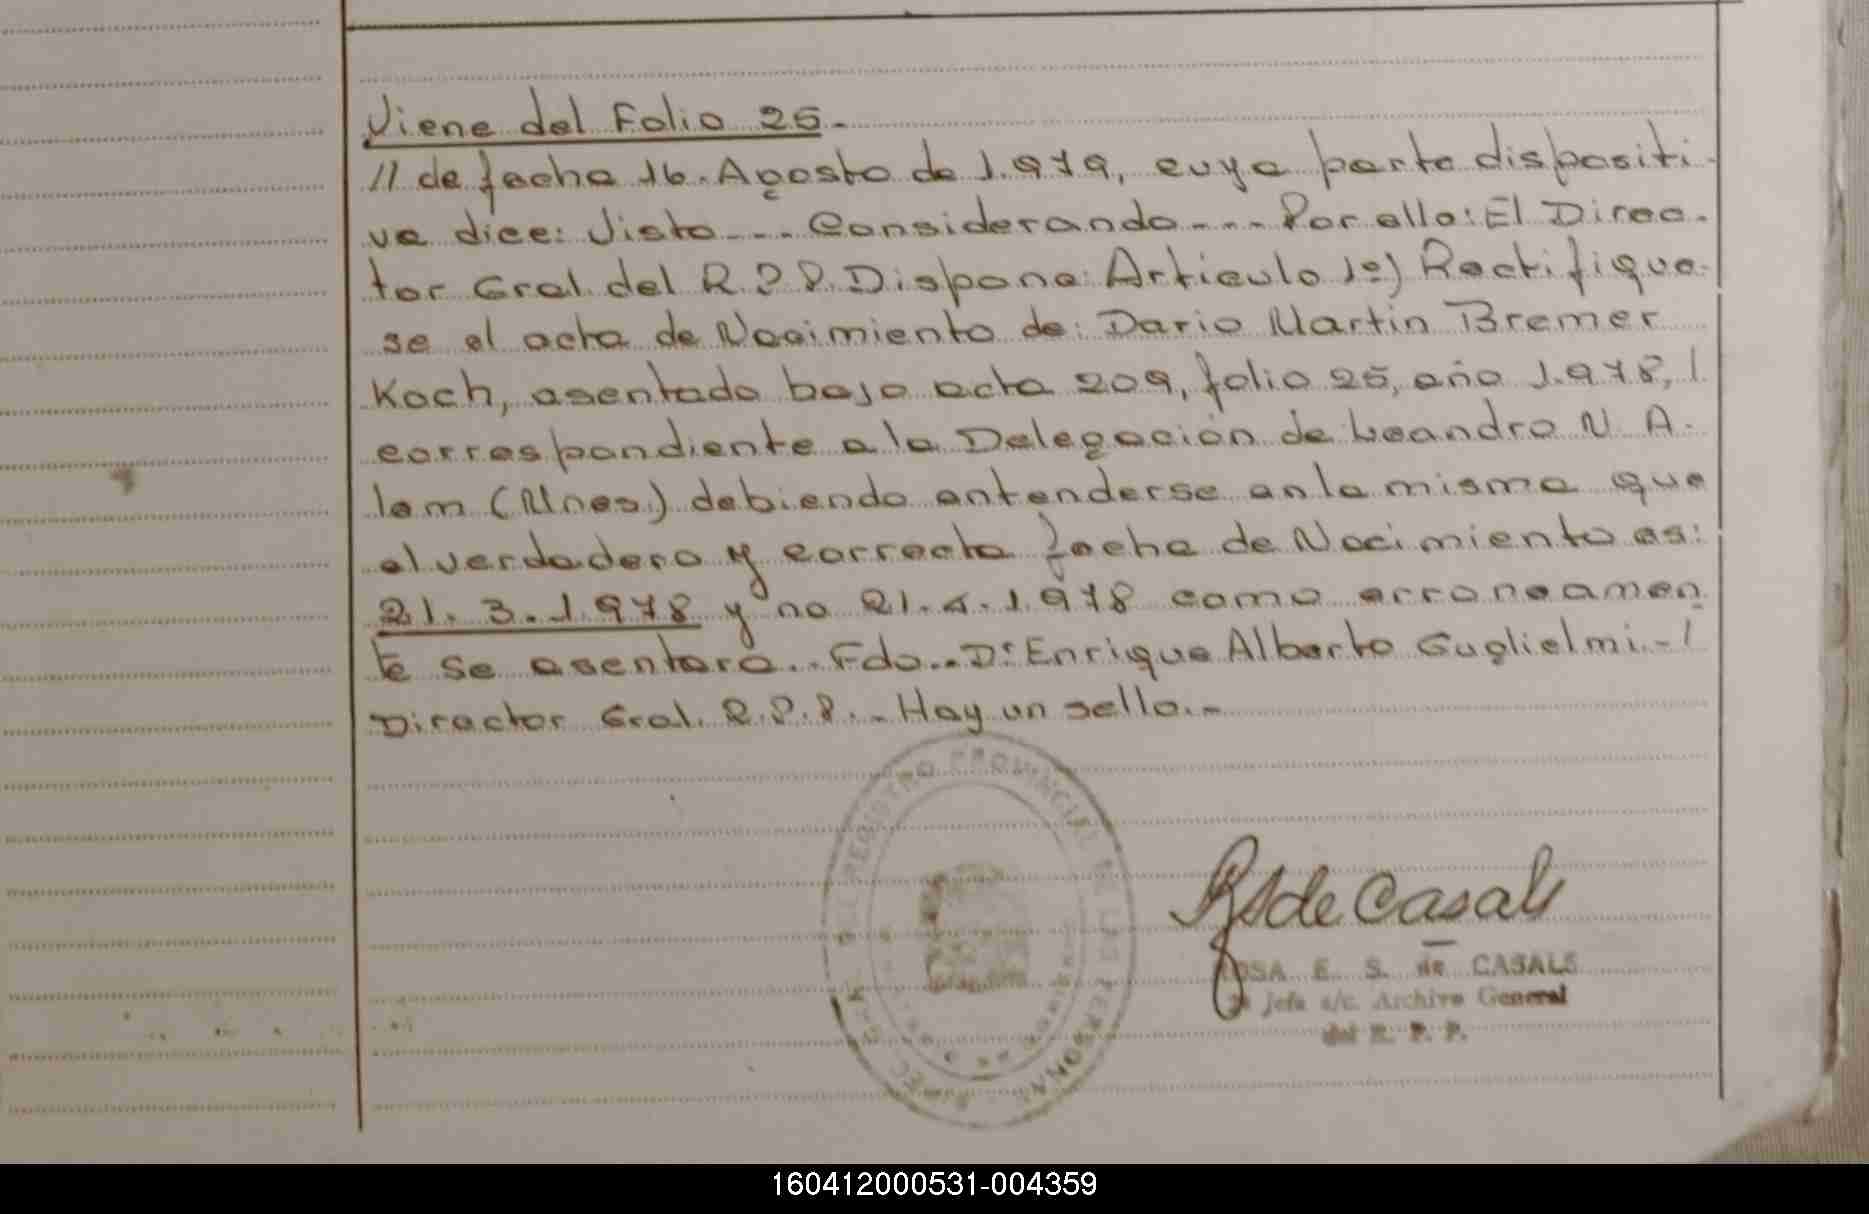 Viene del Folio 25.-
// de fecha 16. Agosto de 1.979, cuya parte dispositi-
va dice: Visto --- Considerando --- Por ello: El Direc-
tor Gral. del R.P.P. Dispone: Articulo 1º) Rectifique-
se el acta de Nacimiento de: Dario Martin Bremer
Koch, asentado bajo acta 209, folio 25, año 1.978, /
correspondiente a la Delegación de Leandro N. A-
lem (Mnes.) debiendo entenderse en la misma que
el verdadero y correcta fecha de Nacimiento es:
21. 3. 1.978 y no 21. 4. 1.978 como erroneamen
te se asentara.. Fdo.. Dr Enrique Alberto Guglielmi.- /
Director Gral. R.P.P. - Hay un sello.-
REGISTRO PROVINCIAL DE LAS PERSONAS
RS de Casals
ROSA E. S. de CASALS
Jefa a/c. Archivo General
del R. P. P.
160412000531-004359